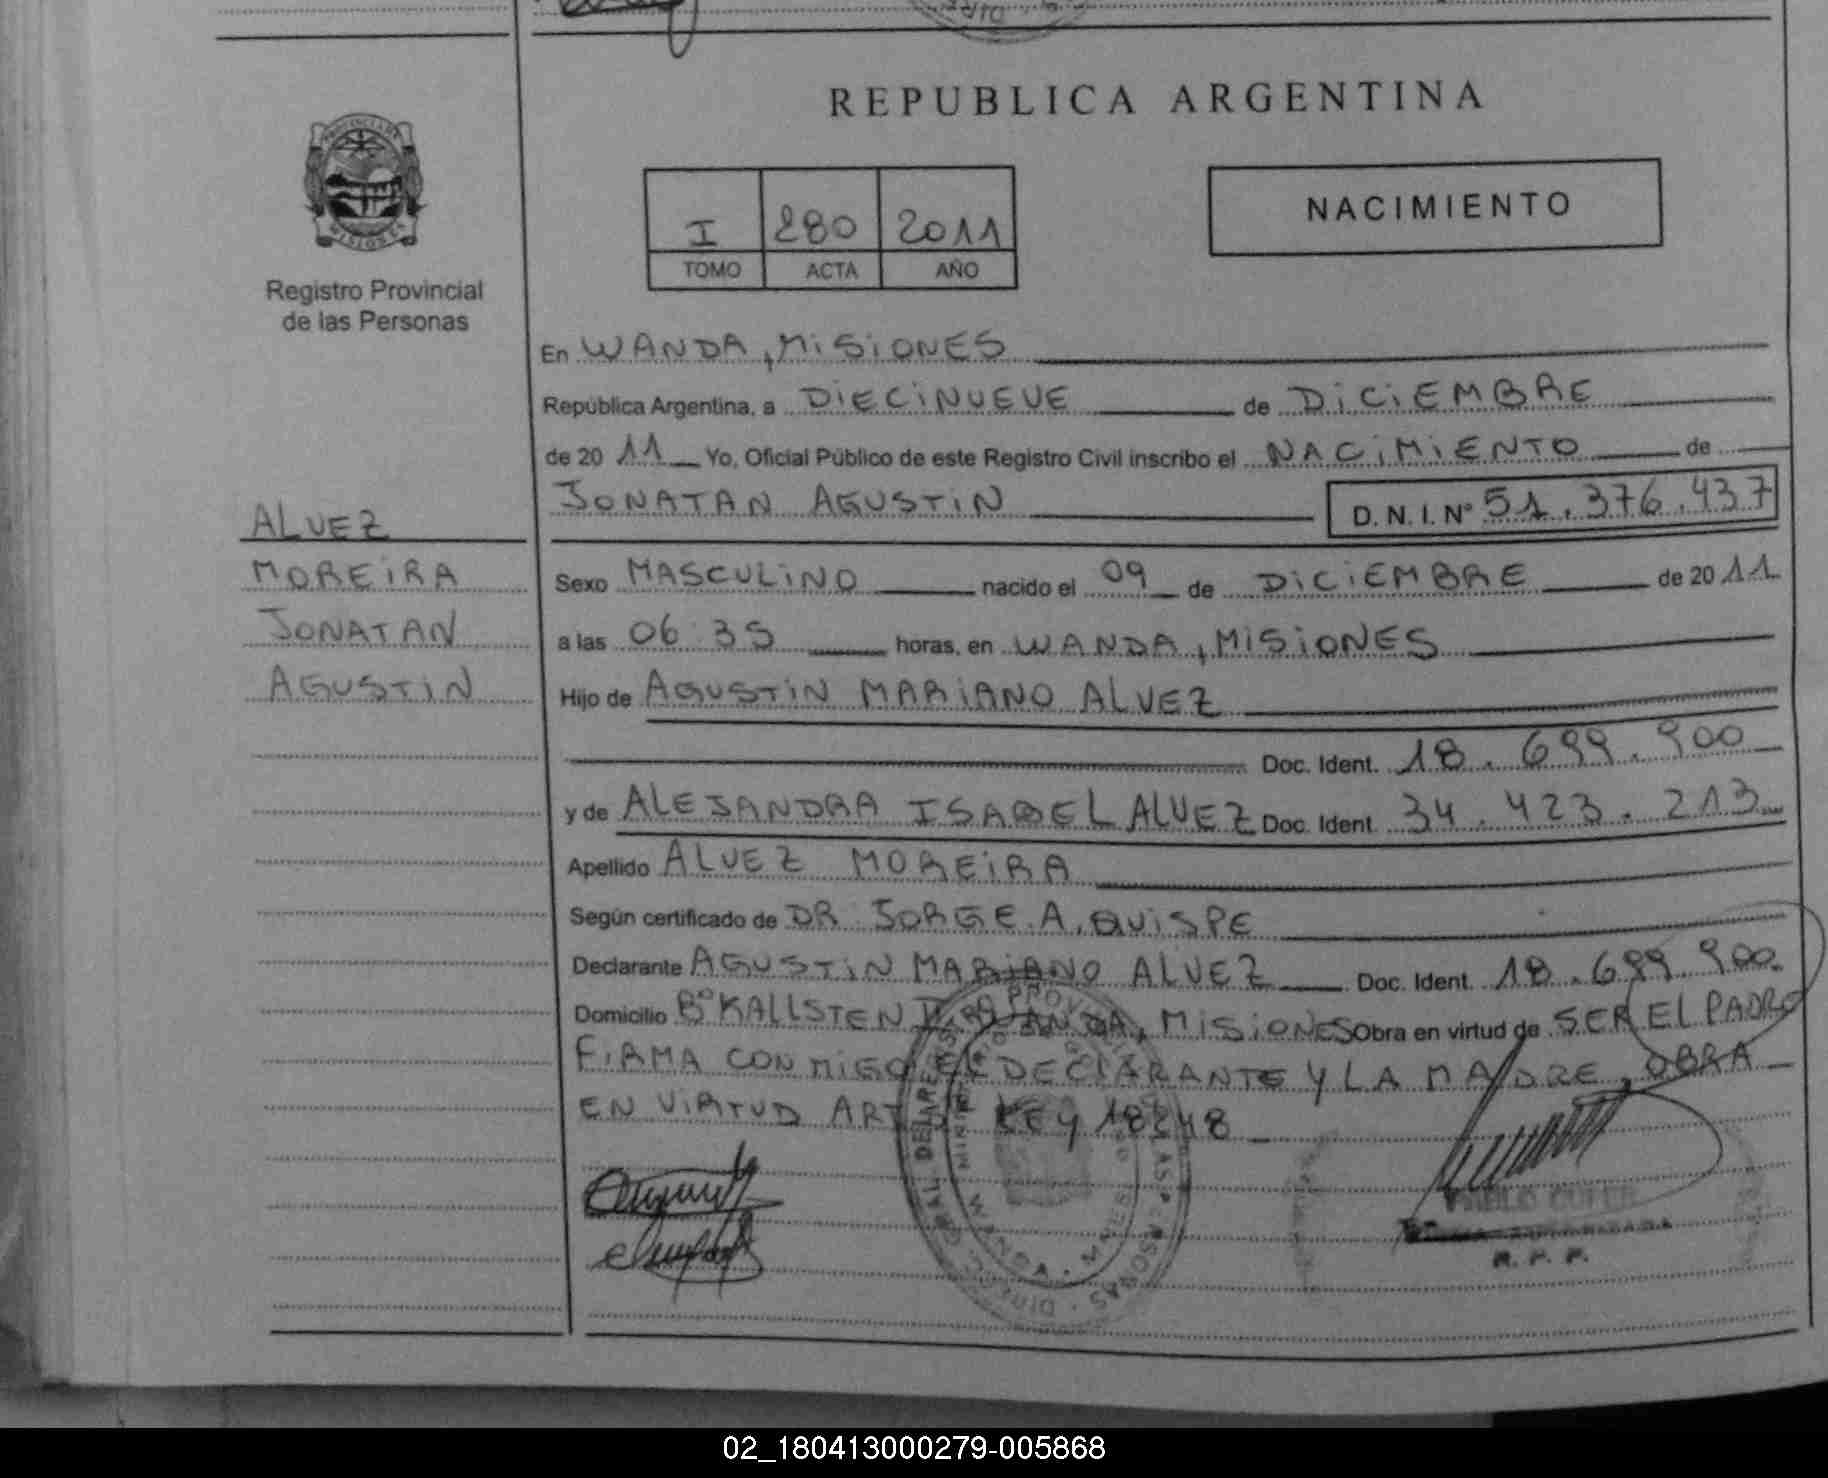 REPUBLICA ARGENTINA
PROVINCIA DE
MISIONES
Registro Provincial
de las Personas
I 280 2011
TOMO ACTA AÑO
NACIMIENTO
En WANDA, MISIONES
República Argentina, a DIECINUEVE de DICIEMBRE
de 20 11 Yo, Oficial Público de este Registro Civil inscribo el NACIMIENTO de
JONATAN AGUSTIN D. N. I. Nº 51.376.437
ALVEZ
MOREIRA
JONATAN
AGUSTIN
Sexo MASCULINO nacido el 09 de DICIEMBRE de 20 11
a las 06:35 horas, en WANDA, MISIONES
Hijo de AGUSTIN MARIANO ALVEZ
Doc. Ident. 18.699.900
y de ALEJANDRA ISABEL ALVEZ Doc. Ident. 34.423.213
Apellido ALVEZ MOREIRA
Según certificado de DR. JORGE A. QUISPE
Declarante AGUSTIN MARIANO ALVEZ Doc. Ident. 18.699.900
Domicilio Bº KALLSTEN WANDA, MISIONES Obra en virtud de SER EL PADRE
FIRMA CON MIGO EL DECLARANTE Y LA MADRE, OBRA
EN VIRTUD ART LEY 18248
WANDA
PABLO
R. P. P.
02_180413000279-005868